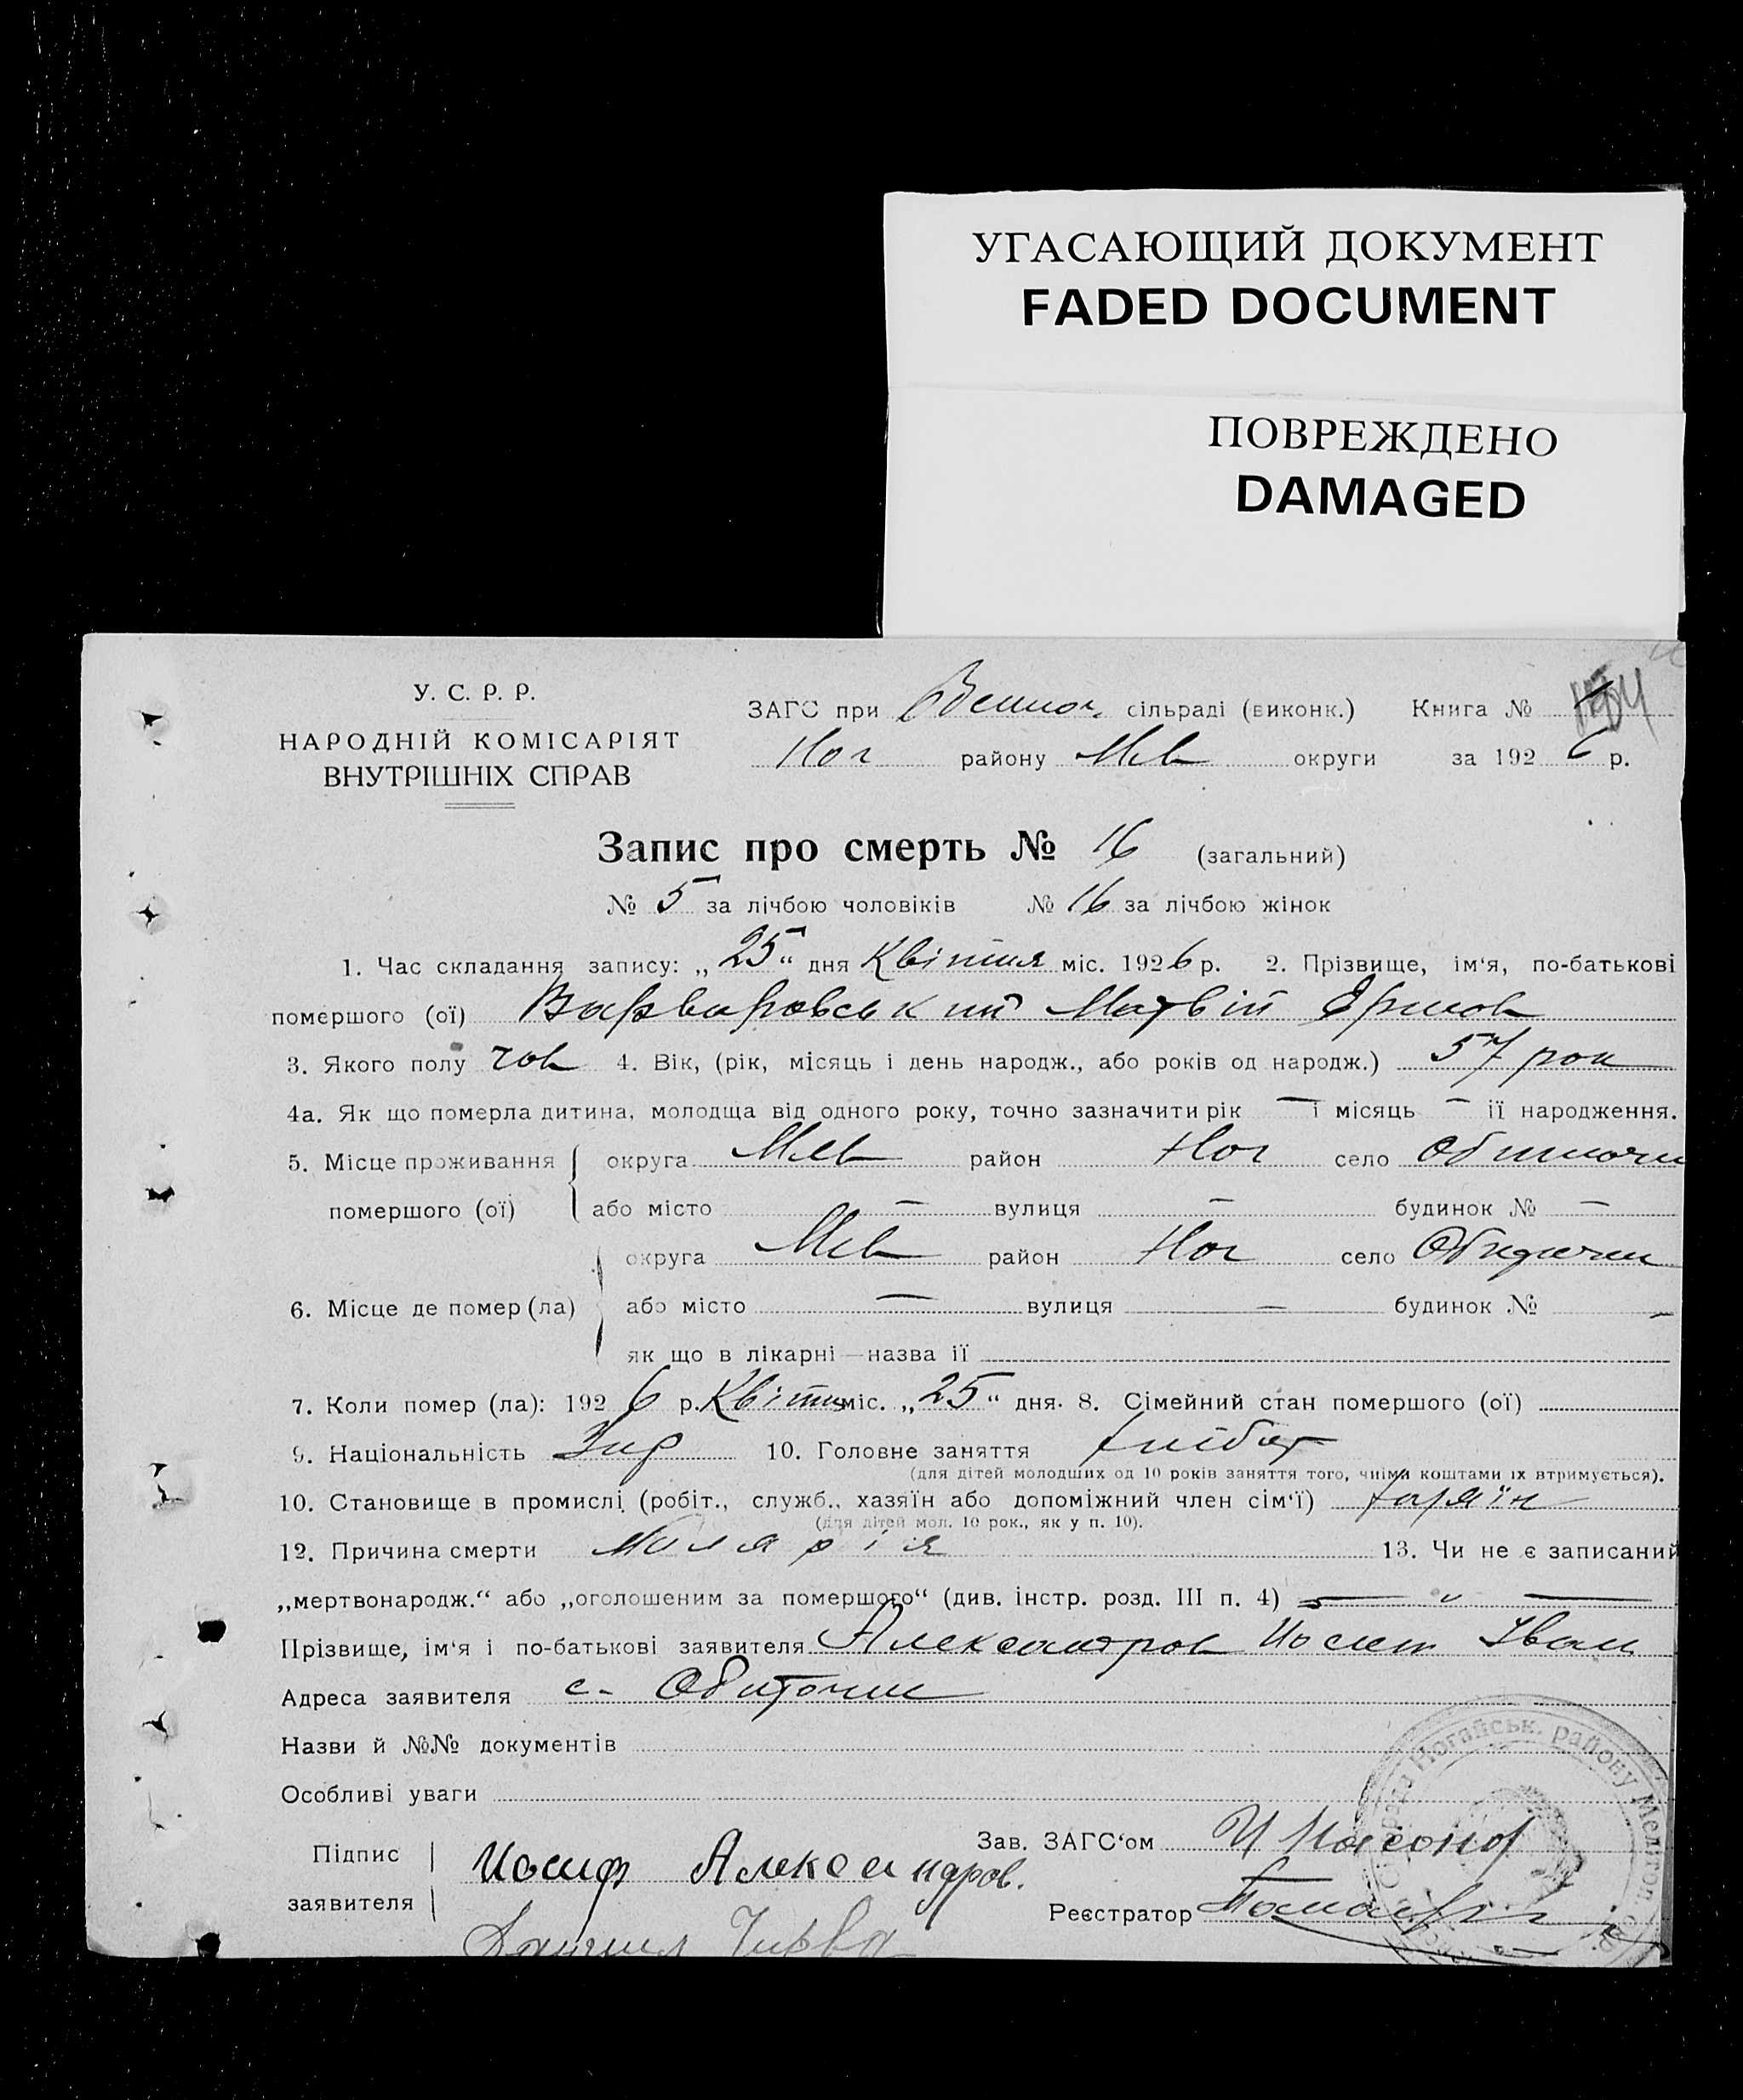 УГАСАЮЩИЙ ДОКУМЕНТ
FADED DOCUMENT
ПОВРЕЖДЕНО
DAMAGED
У. С. Р. Р.
НАРОДНІЙ КОМІСАРІЯТ
ВНУТРІШНІХ СПРАВ
ЗАГС при сільраді (виконк.) Книга №
Ног району Мел округи за 1926 р.
Запис про смерть № 16 (загальний)
№ 5 за лічбою чоловіків № 16 за лічбою жінок
1. Час складання запису: „25“ дня Квітня міс. 1926 р. 2. Прізвище, ім‘я, по-батькові
помершого (ої) Варваровський Матвій
3. Якого полу чов 4. Вік, (рік, місяць і день народж., або років од народж.) 57 рок
4а. Як що померла дитина, молодща від одного року, точно зазначити рік — і місяць — її народження.
5. Місце проживання округа Мел район Ног село Обиточн
помершого (ої) або місто — вулиця — будинок № —
округа Мел район Ног село Обиточн
6. Місце де помер (ла) або місто — вулиця — будинок № —
як що в лікарні — назва її
7. Коли помер (ла): 1926 р. Квітня міс. „25“ дня. 8. Сімейний стан помершого (ої)
9. Національність 10. Головне заняття хлібор
(для дітей молодших од 10 років заняття того, чиїми коштами їх втримується).
10. Становище в промислі (робіт., служб., хазяїн або допоміжний член сім‘ї) хазяїн
(для дітей мол. 10 рок., як у п. 10).
12. Причина смерти Малярія 13. Чи не є записаний
„мертвонародж.“ або „оголошеним за помершого“ (див. інстр. розд. III п. 4) — „ —
Прізвище, ім‘я і по-батькові заявителя Александров Иосип Іван
Адреса заявителя с. Обиточни
Назви й №№ документів
Особливі уваги
Підпис заявителя Иосиф Александров.
Зав. ЗАГС‘ом
Реєстратор
Ногайськ. району Мелітоп.